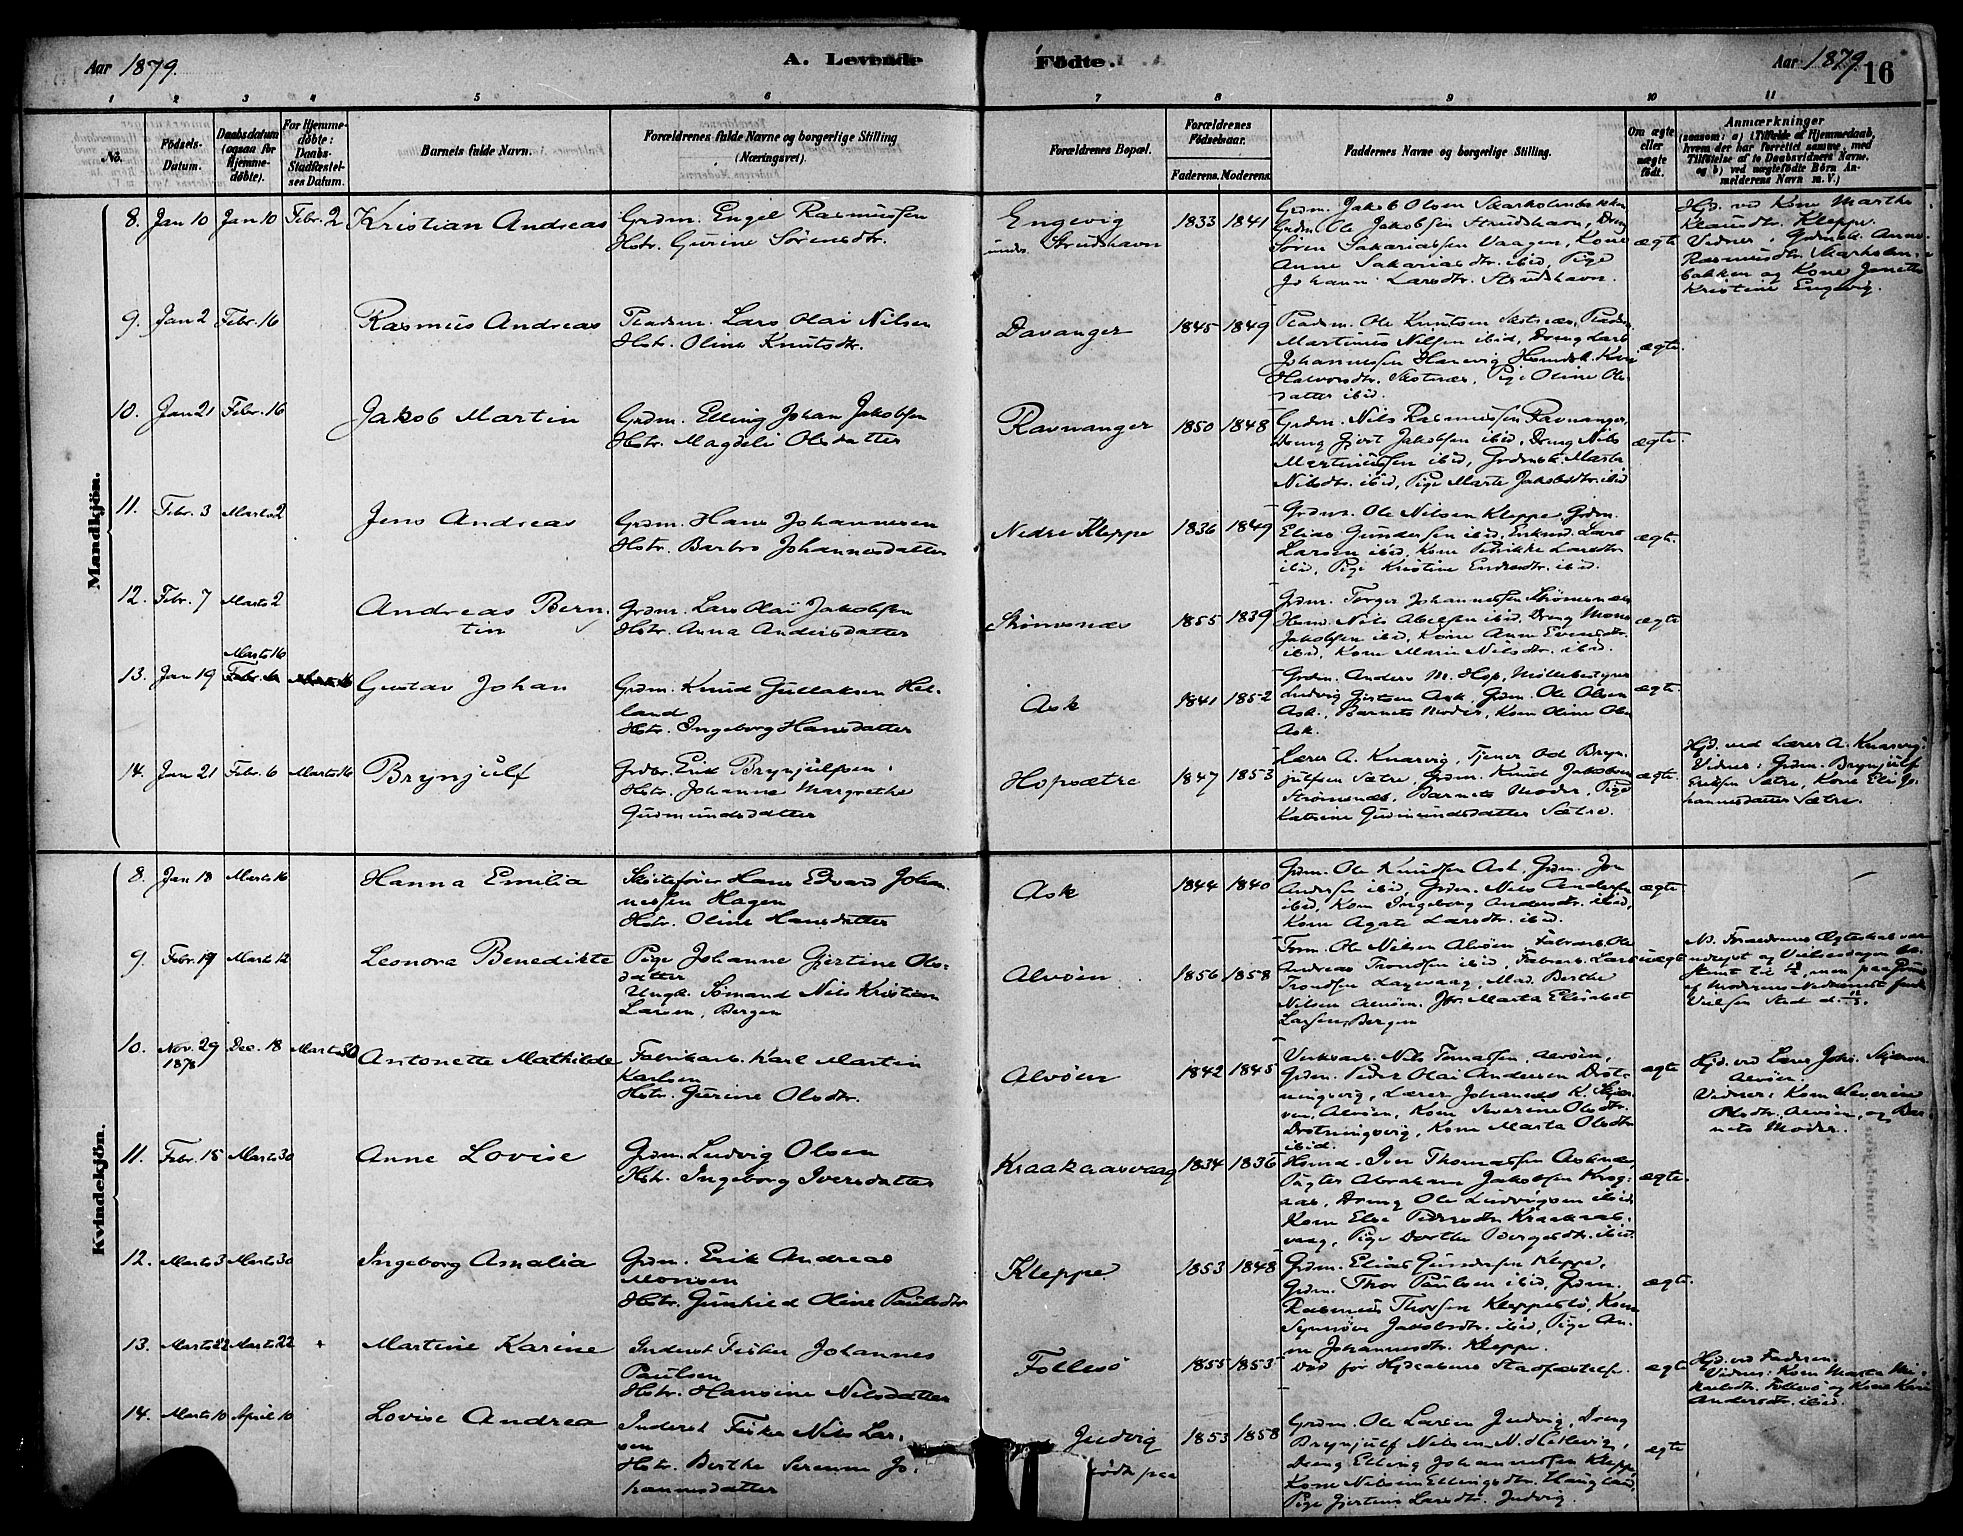 Aar 1879.
A. Levende
Fødte.
Aar 1879
16
1 2 3 4 5 6 7 8 9 10 11
No.
Fødsels-
Datum.
Daabsdatum
(ogsaa for
Hjemme-
døbte).
For Hjemme-
døbte:
Daabs-
Stadfæstel-
ses Datum.
Barnets fulde Navn.
Forældrenes fulde Navne og borgerlige Stilling
(Næringsvei).
Forældrenes Bopæl.
Forældrenes
Fødselsaar.
Faderens. Moderens.
Faddernes Navne og borgerlige Stilling.
Om ægte
eller
uægte
født.
Anmærkninger
(saasom: a) i Tilfælde af Hjemmedaab,
hvem der har forrettet samme, med
Tilføielse af to Daabsvidners Navne.
og b) ved uægtefødte Børn An-
melderens Navn m. V.)
Mandkjön.
8. Jan 10 Jan 10 Febr. 2 Kristian Andreas
Grdm. Engel Rasmussen
Hstr. Gurine Sørensdtr.
Engevig
under Strudshavn
1833 1841
Grdm. Jakob Olsen Skarholmbakken
Grdm. Ole Jakobsen Strudshavn, Dreng
Søren Sakariassen Vaagen, Kone
Anne Sakariasdtr. ibid, Pige
Johann. Larsdtr. Strudshavn.
ægte
Hjd. ved Kone Marthe
Klausdtr. Kleppe.
Vidner: Grdmk. Anne
Rasmusdtr. Skarholm-
bakken og Kone Janette
Kristine Engevig.
9. Jan 2 Febr. 16 Rasmus Andreas
Pladsm. Lars Olai Nilsen
Hstr. Oline Knutsdtr.
Davanger
1845 1849
Pladsm. Ole Knutsen Skotnæs, Pladsm.
Martinus Nilsen ibid, Dreng Lars
Johannessen Hanevig, Husmdsk. Kari
Halvorsdtr. Skotnæs, Pige Oline Ols-
datter ibid.
ægte.
10. Jan 21 Febr. 16 Jakob Martin
Grdm. Elling Johan Jakobsen
Hstr. Magdeli Olsdatter
Ravnanger
1850 1848
Grdm. Nils Rasmussen Ravnanger,
Dreng Gjert Jakobsen ibid, Dreng Nils
Martinussen ibid, Grdmsk. Marta
Nilsdtr. ibid, Pige Marte Jakobsdtr. ibid
ægte.
11. Febr. 3 Marts 2 Jens Andreas
Grdm. Hans Johannesen
Hstr. Barbro Johannesdatter
Nedre Kleppe
1836 1849
Grdm. Ole Nilsen Kleppe, Grdm.
Elias Gundersen ibid, Enkmd. Lars
Larsen ibid, Kone Petrikke Larsdtr.
ibid, Pige Kristine Endresdtr. ibid.
ægte.
12. Febr. 7 Marts 2 Andreas Bern-
tin
Grdm. Lars Olai Jakobsen
Hstr. Anna Andersdatter
Strømsnæs
1855 1839
Grdm. Torger Johannessen Strømsnæs
Husmd. Nils Abelsen ibid, Dreng Mons
Jakobsen ibid, Kone Anne Evensdtr.
ibid, Kone Marie Nilsdtr. ibid.
ægte.
Marts 16
13. Jan 19 Gustav Johan
Grdm. Knud Gullaksen Hel-
land
Hstr. Ingeborg Hansdatter
Ask
1841 1852
Grdm. Anders M. Hop, Møllebestyrer
Ludvig Gjertsen Ask, Grdm. Ole Olsen
Ask, Barnets Moder, Kone Oline Ols.
Ask.
ægte.
14. Jan 21 Febr. 6 Marts 16 Brynjulf
Grdbr. Erik Brynjulfsen.
Hstr. Johanne Margrethe
Gudmundsdatter
Hopsætre
1847 1853
Lærer A. Knarvig, Tjener Od Bryn-
julfsen Sætre, Grdm. Knud Jakobsen
Strømsnæs, Barnets Moder, Pige
Katrine Gudmundsdatter Sætre.
ægte.
Hjd. ved Lærer A. Knarvig.
Vidner: Grdm. Brynjulf
Eriksen Sætre, Kone Eli Jo-
hannesdatter Sætre.
Kvindekjön.
8. Jan 18 Marts 16 Hanna Emilia
Skøitefører Hans Edvard Johan-
nessen Hagen
Hstr. Oline Hansdatter
Ask
1844 1840
Grdm. Ole Knudsen Ask, Grdm. Jon
Andersen ibid, Grdm. Nils Andersen
ibid, Kone Ingeborg Andersdtr. ibid,
Kone Agate Larsdtr. ibid.
ægte
9. Febr. 19 Marts 12 Leonora Benedikte
Pige Johanne Gjertine Ols-
datter
Ungk. Sømand Nils Kristian
Larsen, Bergen
Alvøen
1856 1858
Form. Ole Nilsen Alvøen, Fabrarb. Ole
Andreas Trondsen ibid, Fabrarb. Lars
Trondsen Laxevaag, Mad. Berthe
Nilsen Alvøen, Jfr. Marta Elisabet
Larsen, Bergen
uægte
NB. Forældrenes Ægteskab var
udlyst og Vielsesdagen be-
stemt til, men paa Grund
af Moderens Nedkomst fandt
Vielsen Sted d.
10. Nov. 29
1878 Dec. 18 Marts 30 Antonette Mathilde
Fabrikarb. Karl Martin
Karlsen
Hstr. Gurine Olsdtr.
Alvøen
1842 1845
Verksarb. Nils Tomassen, Alvøen,
Grdm. Peder Olai Andersen Drot-
ningvig, Lærer Johannes K. Skjer-
ven, Alvøen, Kone Severine Olsdtr.
Drotningsvig, Kone Marta Olsdtr.
ibid.
ægte
Hjd. ved Lærer Johs. Skjerven
Alvøen.
Vidner: Kone Severine
Olsdtr. Alvøen, og Bar-
nets Moder.
11. Febr. 15 Marts 30 Anne Lovise
Grdm. Ludvig Olsen
Hstr. Ingeborg Iversdatter
Kraakaasvaag
1834 1836
Husmd. Iver Thomassen Asknæs,
Pagter Abraham Jakobsen Krog-
aas, Dreng Ole Ludvigsen ibid
Kone Else Pedersdtr. Kraakaas-
vaag, Pige Dorthe Børgesdtr. ibid.
ægte.
12. Marts 3 Marts 30 Ingeborg Amalia
Grdm. Erik Andreas
Monsen
Hstr. Gunhild Oline Paulsdtr
Kleppe
1853 1848
Grdm. Elias Gundersen Kleppe,
Grdm. Thor Paulsen ibid, Grdm.
Rasmus Thorsen Kleppestø, Kone
Synnøve Jakobsdtr. ibid, Pige An-
ne Johannesdtr. Kleppe.
ægte.
13. Marts 22 Marts 22 + Martine Karine
Inderst Fisker Johannes
Paulsen
Hstr. Hansine Nilsdatter
Follesø
1855 1853
Død før Hjdaabens Stadfæstelse.
ægte
Hjd. ved Faderen.
Vidner: Kone Marta Mi-
kaelsdtr. Follesø og Kone Kari
Andersdtr. ibid.
14. Marts 10 April 10 Lovise Andrea
Inderst Fisker Nils Lar-
sen
Hstr. Berthe Serenne Jo-
hannesdatter
Judvig
født paa
1853 1858
Grdm. Ole Larsen Judvig, Dreng
Brynjulf Nilsen N. Hetlevig,
Dreng Elling Johannessen Kleppe,
Kone Nilsine Ellingsdtr. Haugland,
Pige Gjertine Larsdtr. Judvig.
ægte